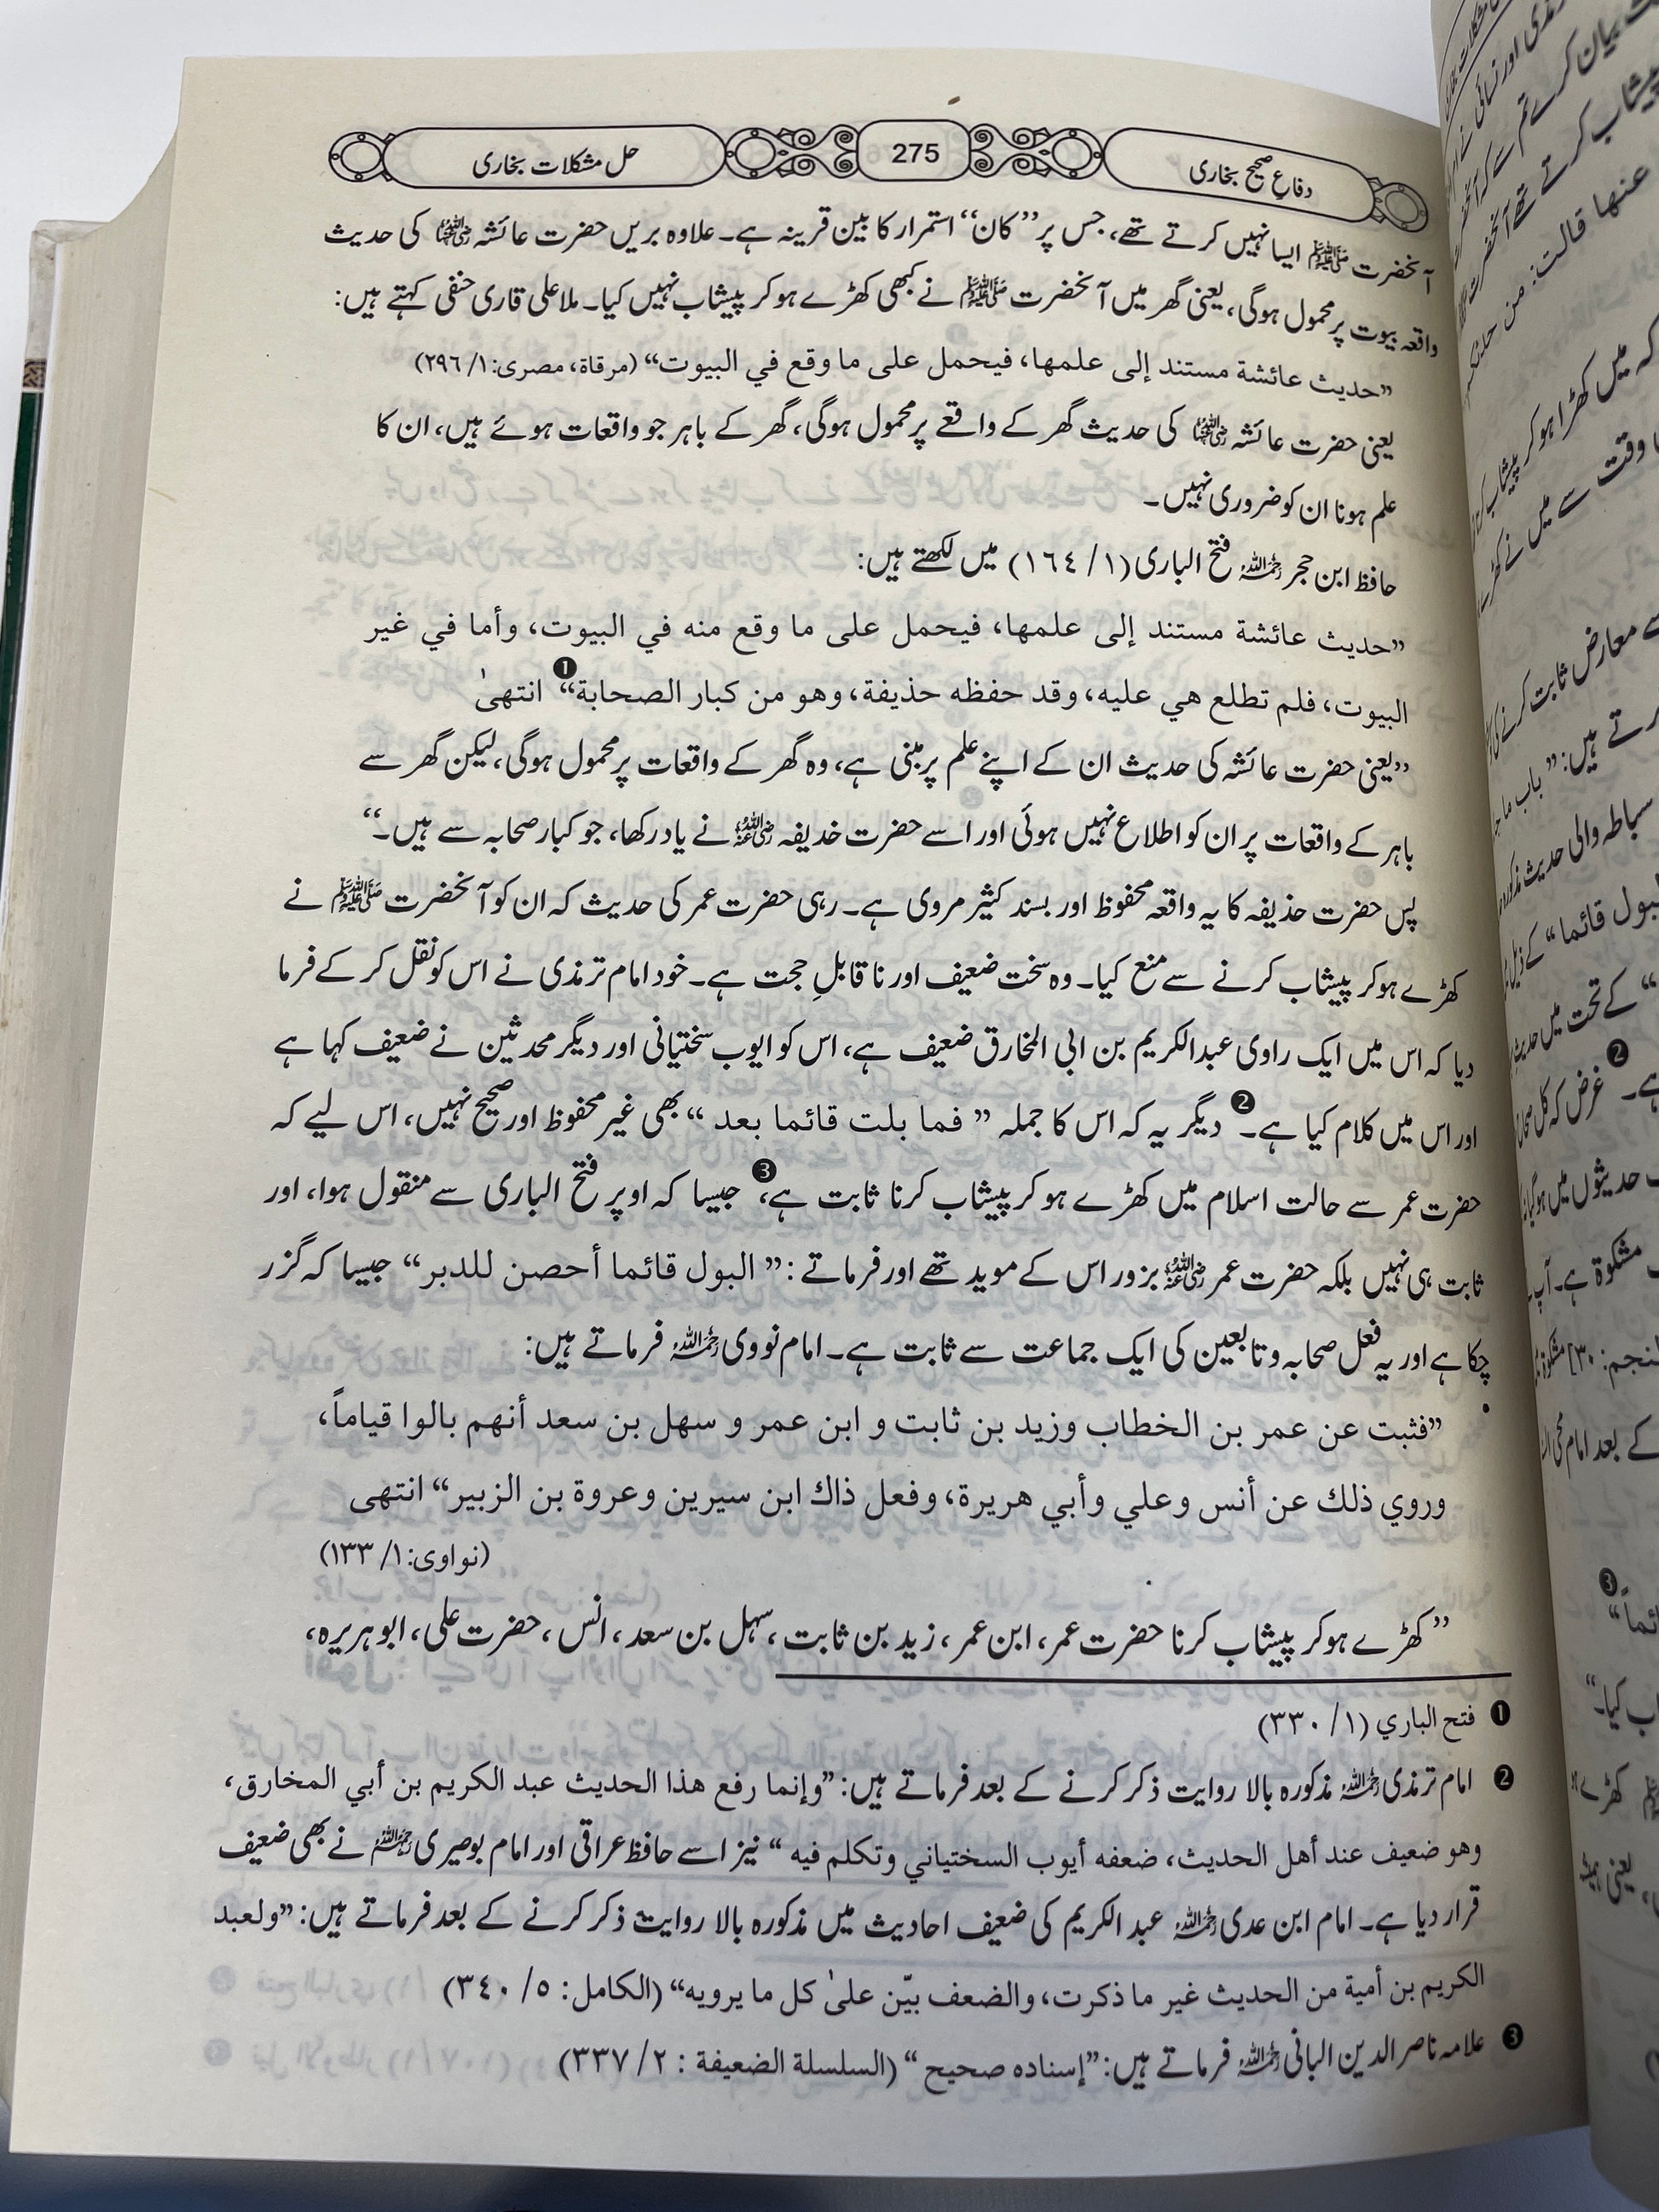 دفاعِ صحیح بخاری
275
حل مشکلات بخاری
آنحضرت ﷺ ایسا نہیں کرتے تھے، جس پر ”کان“ استمرار کا بین قرینہ ہے۔ علاوہ بریں حضرت عائشہ رضی اللہ عنہا کی حدیث
واقعہ بیوت پر محمول ہوگی، یعنی گھر میں آنحضرت ﷺ نے کبھی کھڑے ہو کر پیشاب نہیں کیا۔ ملا علی قاری حنفی کہتے ہیں:
”حديث عائشة مستند إلى علمها، فيحمل على ما وقع في البيوت“ (مرقاة، مصری: ١/ ٢٩٦)
یعنی حضرت عائشہ رضی اللہ عنہا کی حدیث گھر کے واقعے پر محمول ہوگی، گھر کے باہر جو واقعات ہوئے ہیں، ان کا
علم ہونا ان کو ضروری نہیں۔
حافظ ابن حجر رحمہ اللہ فتح الباری (١/ ١٦٤) میں لکھتے ہیں:
”حديث عائشة مستند إلى علمها، فيحمل على ما وقع منه في البيوت، وأما في غير
البيوت، فلم تطلع هي عليه، وقد حفظه حذيفة، وهو من كبار الصحابة“❶ انتهىٰ
”یعنی حضرت عائشہ کی حدیث ان کے اپنے علم پر مبنی ہے، وہ گھر کے واقعات پر محمول ہوگی، لیکن گھر سے
باہر کے واقعات پر ان کو اطلاع نہیں ہوئی اور اسے حضرت خدیفہ رضی اللہ عنہ نے یاد رکھا، جو کبار صحابہ سے ہیں۔“
پس حضرت حذیفہ کا یہ واقعہ محفوظ اور بسند کثیر مروی ہے۔ رہی حضرت عمر کی حدیث کہ ان کو آنحضرت ﷺ نے
کھڑے ہو کر پیشاب کرنے سے منع کیا۔ وہ سخت ضعیف اور نا قابلِ حجت ہے۔ خود امام ترمذی نے اس کو نقل کر کے فرما
دیا کہ اس میں ایک راوی عبدالکریم بن ابی المخارق ضعیف ہے، اس کو ایوب سختیانی اور دیگر محدثین نے ضعیف کہا ہے
اور اس میں کلام کیا ہے۔❷ دیگر یہ کہ اس کا جملہ ” فما بلت قائما بعد “ بھی غیر محفوظ اور صحیح نہیں، اس لیے کہ
حضرت عمر سے حالت اسلام میں کھڑے ہو کر پیشاب کرنا ثابت ہے،❸ جیسا کہ اوپر فتح الباری سے منقول ہوا، اور
ثابت ہی نہیں بلکہ حضرت عمر رضی اللہ عنہ بزور اس کے موید تھے اور فرماتے: ” البول قائما أحصن للدبر“ جیسا کہ گزر
چکا ہے اور یہ فعل صحابہ و تابعین کی ایک جماعت سے ثابت ہے۔ امام نووی رحمہ اللہ فرماتے ہیں:
”فثبت عن عمر بن الخطاب وزيد بن ثابت و ابن عمر و سهل بن سعد أنهم بالوا قياماً،
وروي ذلك عن أنس وعلي وأبي هريرة، وفعل ذاك ابن سيرين وعروة بن الزبير“ انتهى
(نواوی: ١/ ١٣٣)
”کھڑے ہو کر پیشاب کرنا حضرت عمر، ابن عمر، زید بن ثابت، سہل بن سعد، انس، حضرت علی، ابوہریرہ،
❶ فتح الباري (١/ ٣٣٠)
❷ امام ترمذی رحمہ اللہ مذکورہ بالا روایت ذکر کرنے کے بعد فرماتے ہیں: ”وإنما رفع هذا الحديث عبد الكريم بن أبي المخارق،
وهو ضعيف عند أهل الحديث، ضعفه أيوب السختياني وتكلم فيه “ نیز اسے حافظ عراقی اور امام بوصیری رحمہم اللہ نے بھی ضعیف
قرار دیا ہے۔ امام ابن عدی رحمہ اللہ عبد الکریم کی ضعیف احادیث میں مذکورہ بالا روایت ذکر کرنے کے بعد فرماتے ہیں: ”ولعبد
الكريم بن أمية من الحديث غير ما ذكرت، والضعف بيّن علىٰ كل ما يرويه“ (الكامل: ٥/ ٣٤٠)
❸ علامہ ناصر الدین البانی رحمہ اللہ فرماتے ہیں: ”إسناده صحيح“ (السلسلة الضعيفة : ٢/ ٣٣٧)